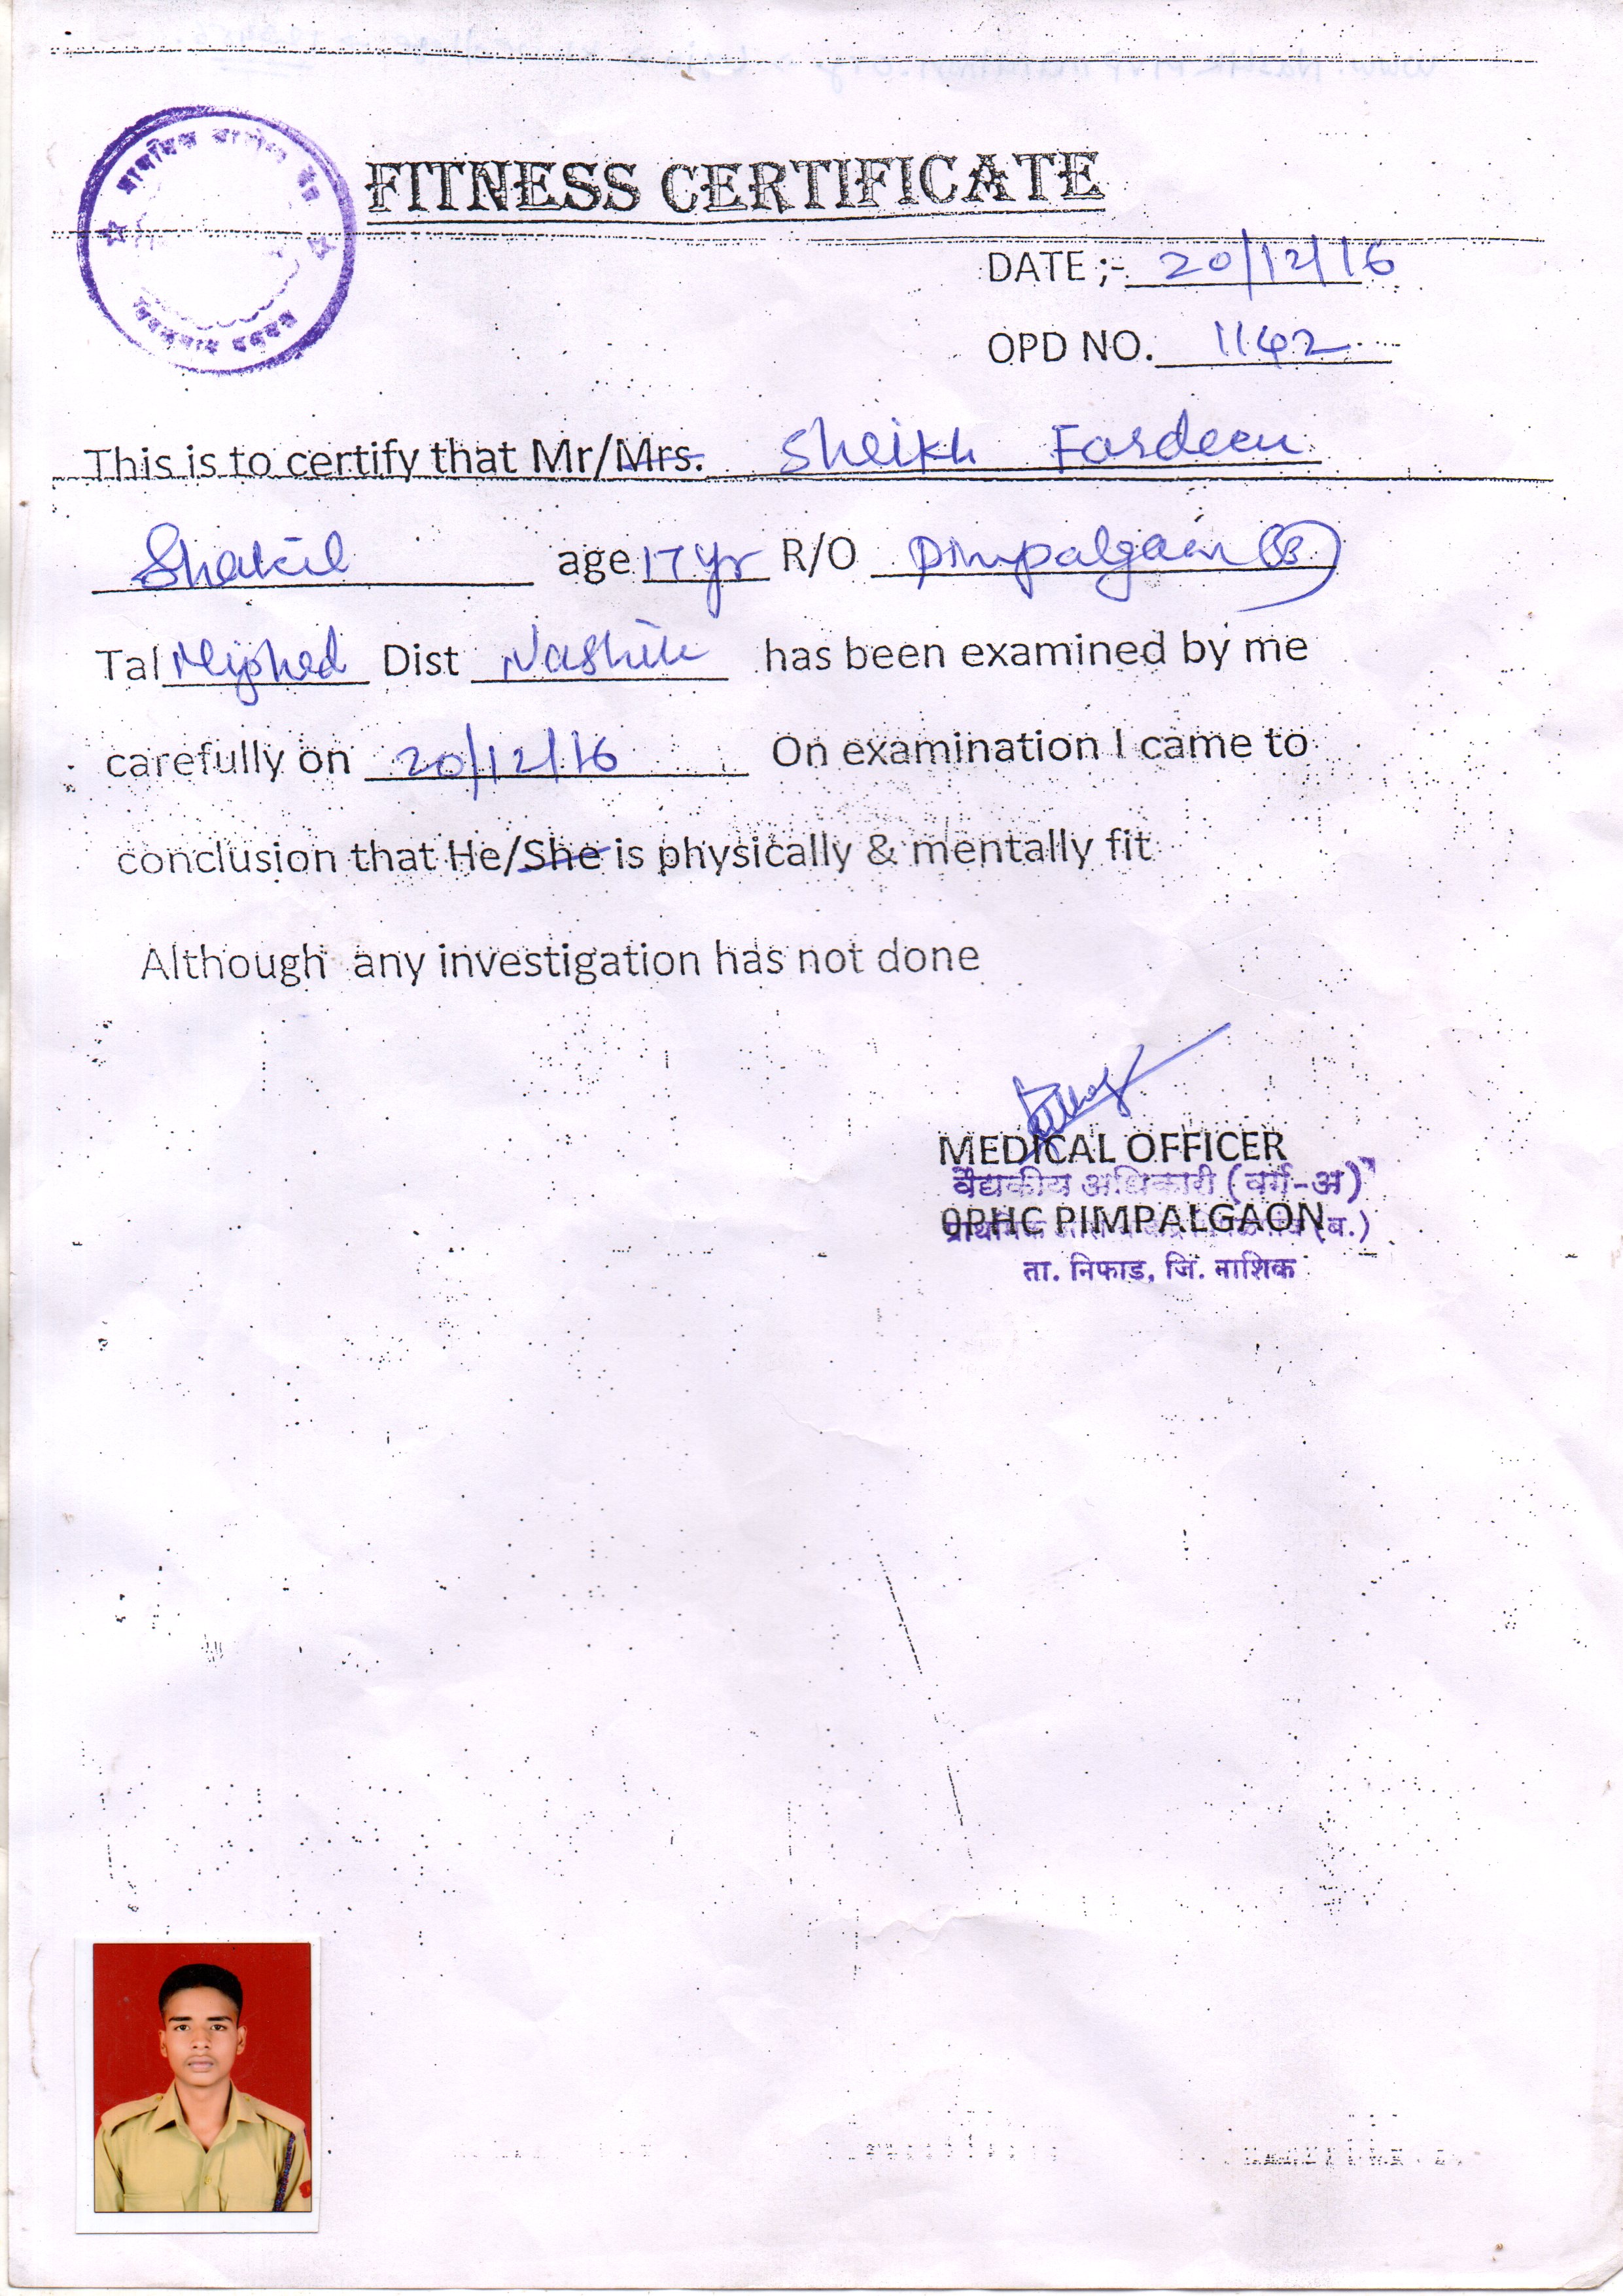 प्राथमिक आरोग्य केंद्र
FITNESS CERTIFICATE
DATE ;- 20/12/16
OPD NO. 1142
This is to certify that Mr/Mrs. Sheikh Fardeen
Shakil age 17 yr R/O Pimpalgaon (B)
Tal Niphad Dist Nashik has been examined by me
carefully on 20/12/16 On examination I came to
conclusion that He/She is physically & mentally fit
Although any investigation has not done
MEDICAL OFFICER
वैद्यकीय अधिकारी (वर्ग-अ)
0PHC PIMPALGAON
(ब.)
ता. निफाड, जि. नाशिक